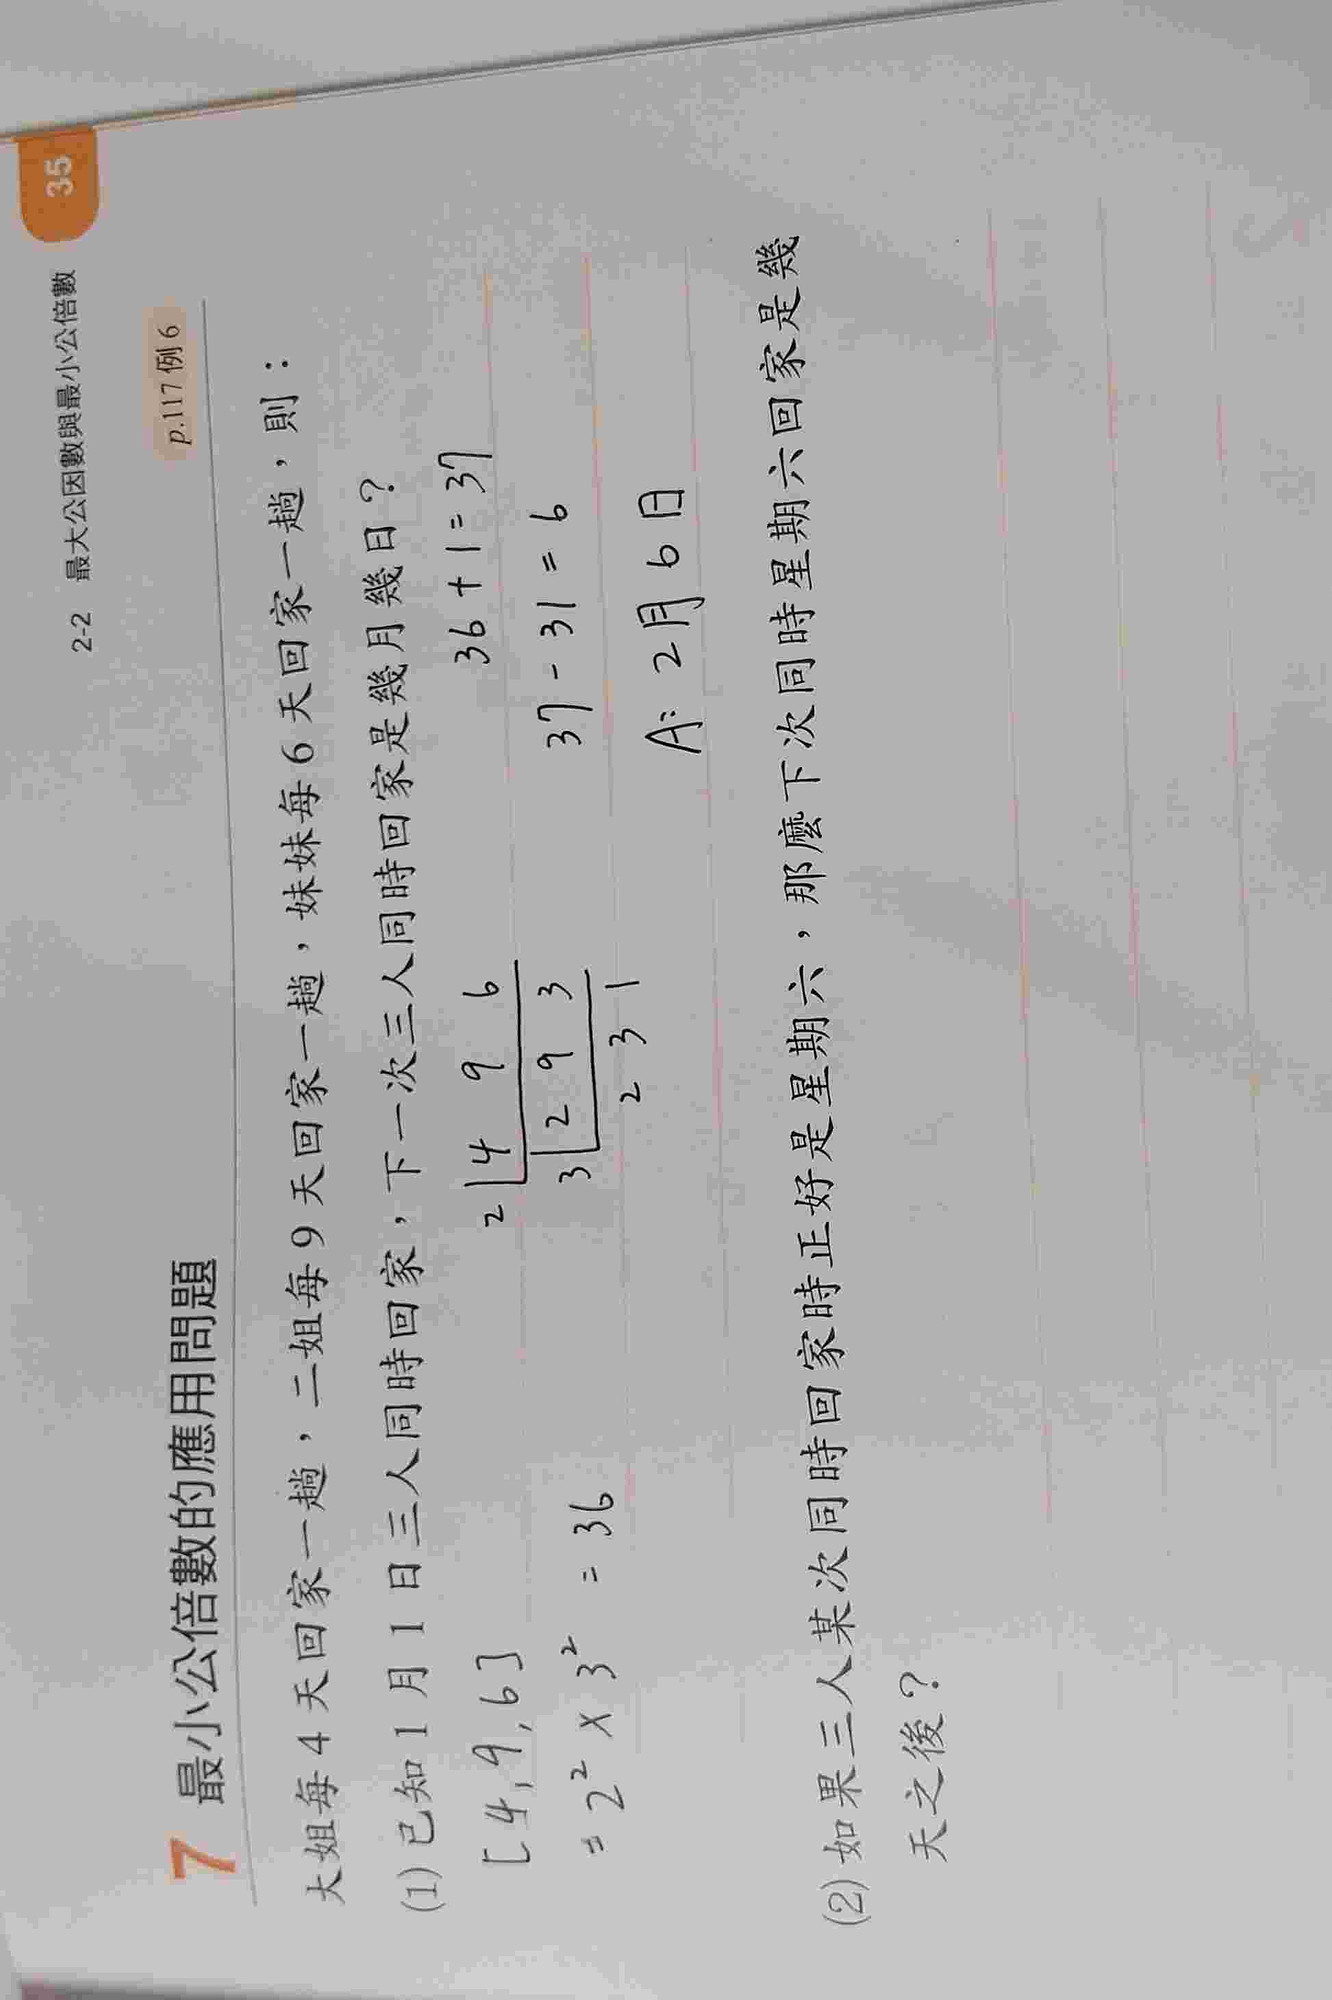 2-2 最大公因數與最小公倍數 35
7 最小公倍數的應用問題 p.117例6
大姐每4天回家一趟，二姐每9天回家一趟，妹妹每6天回家一趟，則：
(1)已知1月1日三人同時回家，下一次三人同時回家是幾月幾日？
[4,9,6] 2 4 9 6 36+1=37
=2²×3²=36 3 2 9 3 37-31=6
2 3 1 A: 2月6日
(2)如果三人某次同時回家時正好是星期六，那麼下次同時星期六回家是幾
天之後？